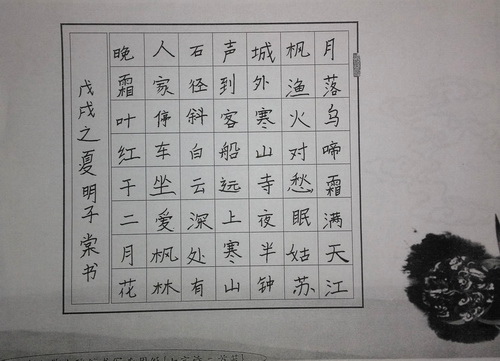 月落乌啼霜满天江
枫渔火对愁眠姑苏
城外寒山寺夜半钟
声到客船远上寒山
石径斜白云深处有
人家停车坐爱枫林
晚霜叶红于二月花
戊戌之夏明子棠书